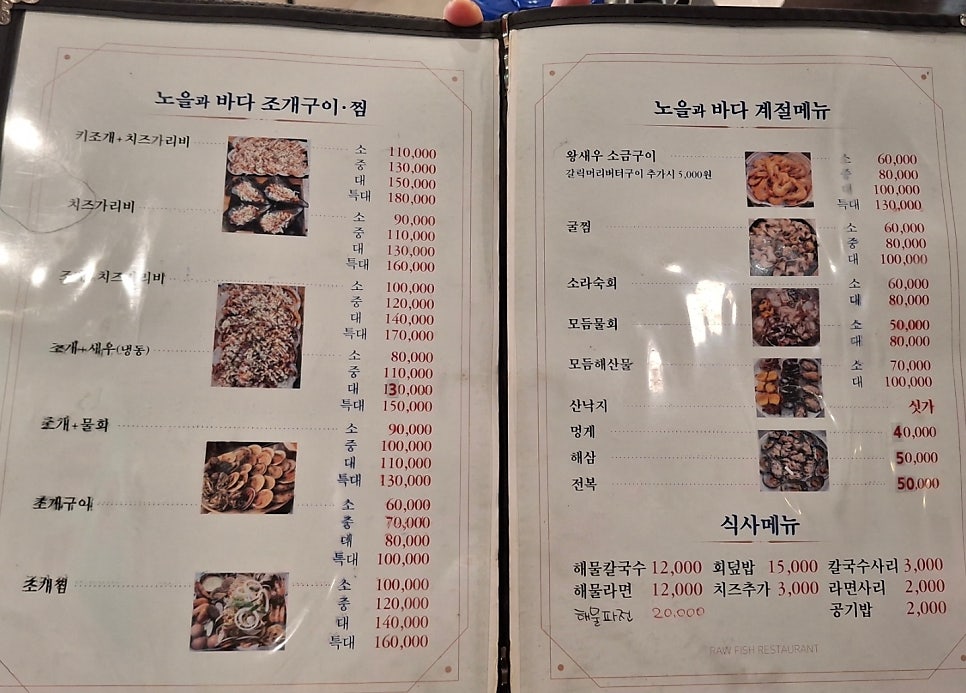 노을과 바다 조개구이·찜
키조개+치즈가리비
소 110,000
중 130,000
대 150,000
특대 180,000
치즈가리비
소 90,000
중 110,000
대 130,000
특대 160,000
조개+치즈가리비
소 100,000
중 120,000
대 140,000
특대 170,000
조개+새우(냉동)
소 80,000
중 110,000
대 130,000
특대 150,000
조개+물회
소 90,000
중 100,000
대 110,000
특대 130,000
조개구이
소 60,000
중 70,000
대 80,000
특대 100,000
조개찜
소 100,000
중 120,000
대 140,000
특대 160,000
노을과 바다 계절메뉴
왕새우 소금구이
갈릭머리버터구이 추가시 5,000원
소 60,000
중 80,000
대 100,000
특대 130,000
굴찜
소 60,000
중 80,000
대 100,000
소라숙회
소 60,000
대 80,000
모듬물회
소 50,000
대 80,000
모듬해산물
소 70,000
대 100,000
산낙지 싯가
멍게 40,000
해삼 50,000
전복 50,000
식사메뉴
해물칼국수 12,000 회덮밥 15,000 칼국수사리 3,000
해물라면 12,000 치즈추가 3,000 라면사리 2,000
해물파전 20,000 공기밥 2,000
RAW FISH RESTAURANT